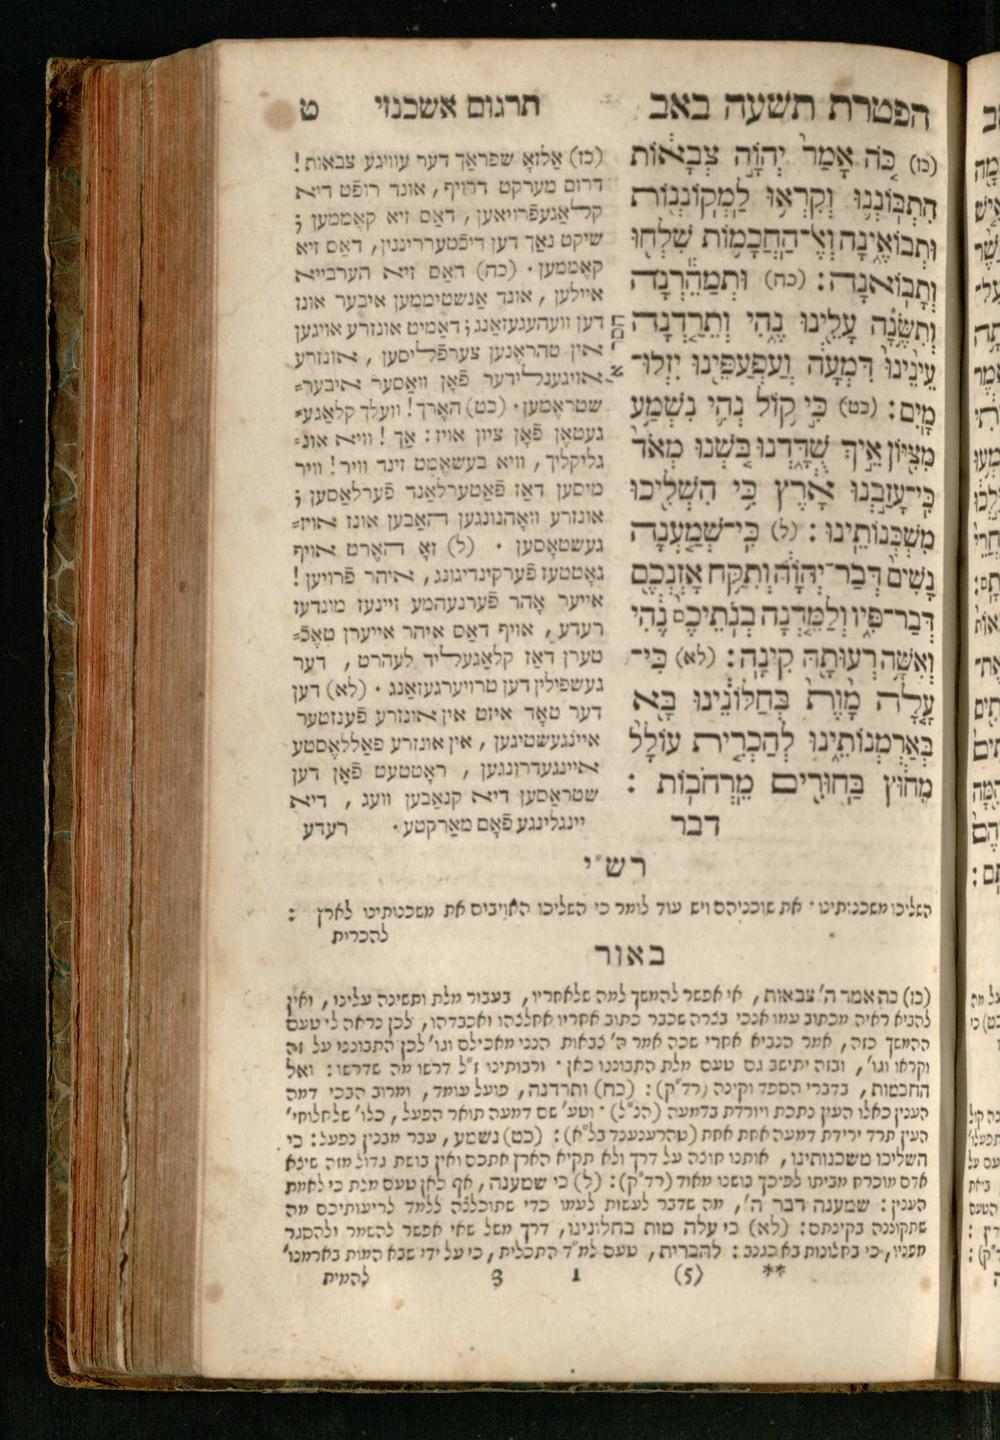 הפטרת תשעה באב
תרגום אשכנזי
ט
(כז) כֹּה אָמַר יְהוָֹה צְבָאוֹת
הִתְבּוֹנְנוּ וְקִרְאוּ לַמְקוֹנְנוֹת
וּתְבוֹאֶינָה וְאֶל־הַחֲכָמוֹת שִׁלְחוּ
וְתָבוֹאנָה: (כח) וּתְמַהֵרְנָה
וְתִשֶּׂנָה עָלֵינוּ נֶהִי וְתֵרַדְנָה
עֵינֵינוּ דִּמְעָה וְעַפְעַפֵּינוּ יִזְּלוּ־
מָיִם: (כט) כִּי קוֹל נְהִי נִשְׁמַע
מִצִּיּוֹן אֵיךְ שֻׁדָּדְנוּ בֹּשְׁנוּ מְאֹד
כִּי־עָזַבְנוּ אָרֶץ כִּי הִשְׁלִיכוּ
מִשְׁכְּנוֹתֵינוּ: (ל) כִּי־שְׁמַעְנָה
נָשִׁים דְּבַר־יְהוָֹה וְתִקַּח אָזְנְכֶם
דְּבַר־פִּיו וְלַמֵּדְנָה בְנֹתֵיכֶם נֶהִי
וְאִשָּׁה רְעוּתָהּ קִינָה: (לא) כִּי־
עָלָה מָוֶת בְּחַלּוֹנֵינוּ בָּא
בְּאַרְמְנוֹתֵינוּ לְהַכְרִית עוֹלָל
מִחוּץ בַּחוּרִים מֵרְחֹבוֹת:
דבר
(כז) אַלזאָ שפראַך דער עוויגע צבאות!
דרום מערקט דרויף, אונד רופֿט דיא
קלאַגעפֿרויאען, דאַס זיא קאָממען;
שיקט נאַך דען דיכֿטערריננין, דאַס זיא
קאָממען. (כח) דאַס זיא הערבייא
איילען, אונד אַנשטיממען איבער אונז
דען וועהעגעזאַנג; דאַמיט אונזרע אויגען
אין טהראֶנען צערפֿליסען, אונזרע
אויגענלידער פֿאָן וואַסער איבער־
שטראָמען. (כט) האָרך! וועלך קלאַגע־
געטאָן פֿאָן ציון אויז: אַך! וויא אונ־
גליקליך, וויא בעשאֶמט זינד וויר! וויר
מיסען דאַז פֿאַטערלאַנד פֿערלאַסען;
אונזרע וואָהנונגען האַבען אונז אויז־
געשטאָסען. (ל) זאָ האֶרט אויף
גאָטטעז פֿערקינדיגונג, איהר פֿרויען!
אייער אָהר פֿערנעהמע זיינעז מונדעז
רעדע, אויף דאַס איהר אייערן טאֶכֿ־
טערן דאַז קלאַגעליד לעהרט, דער
געשפילין דען טרויערגעזאַנג. (לא) דען
דער טאָד איזט אין אונזרע פֿענזטער
איינגעשטיגען, אין אונזרע פאַללאֶסטע
איינגעדרונגען, ראָטטעט פֿאָן דען
שטראַסען דיא קנאַבען וועג, דיא
יינגלינגע פֿאָם מאַרקטע. רעדע
רש״י
השליכו משכנותינו. את שוכניהם ויש עוד לומר כי השליכו האויבים את משכנותינו לארץ:
להכרית
באור
(כז) כה אמר ה' צבאות, אי אפשר להמשך למה שלאחריו, בעבור מלת ותשינה עלינו, ואין
להביא ראיה מכתוב עמו אנכי בצרה שכבר כתוב אחריו אחלצהו ואכבדהו, לכן נראה לי טעם
ההמשך כזה, אמר הנביא אחרי שכה אמר ה' צבאות הנני מאכילם וגו' לכן התבוננו על זה
וקראו וגו', ובזה יתישב גם טעם מלת התבוננו כאן. ורבותינו ז"ל דרשו מה שדרשו: ואל
החכמות, בדברי הספד וקינה (רד"ק): (כח) ותרדנה, פועל עומד, ומרוב הבכי דמה
הענין כאלו העין נתכת ויורדת בדמעה (הנ"ל). וטע' שם דמעה תואר הפעל, כלו' שלחלוחי'
העין תרד ירידת דמעה אחת אחת (טהרענענד בל"א): (כט) נשמע, עבר מבנין נפעל: כי
השליכו משכנותינו, אותנו חוצה על דרך ולא תקיא הארץ אתכם ואין בושת גדול מזה שיצא
אדם מוכרח מביתו לפיכך בושנו מאוד (רד"ק): (ל) כי שמענה, אף כאן טעם מלת כי לאמת
הענין: שמענה דבר ה', מה שדבר לעשות לעמו כדי שתוכלנה ללמד לריעותיכם מה
שתקוננה בקינתם: (לא) כי עלה מות בחלונינו, דרך משל שאי אפשר להשמר ולהסגר
מפניו, כי בחלונות בא כגנב: להכרית, טעם למ"ד התכלית, כי על ידי שבא המות בארמנו'
** (5) 1 3 להמית